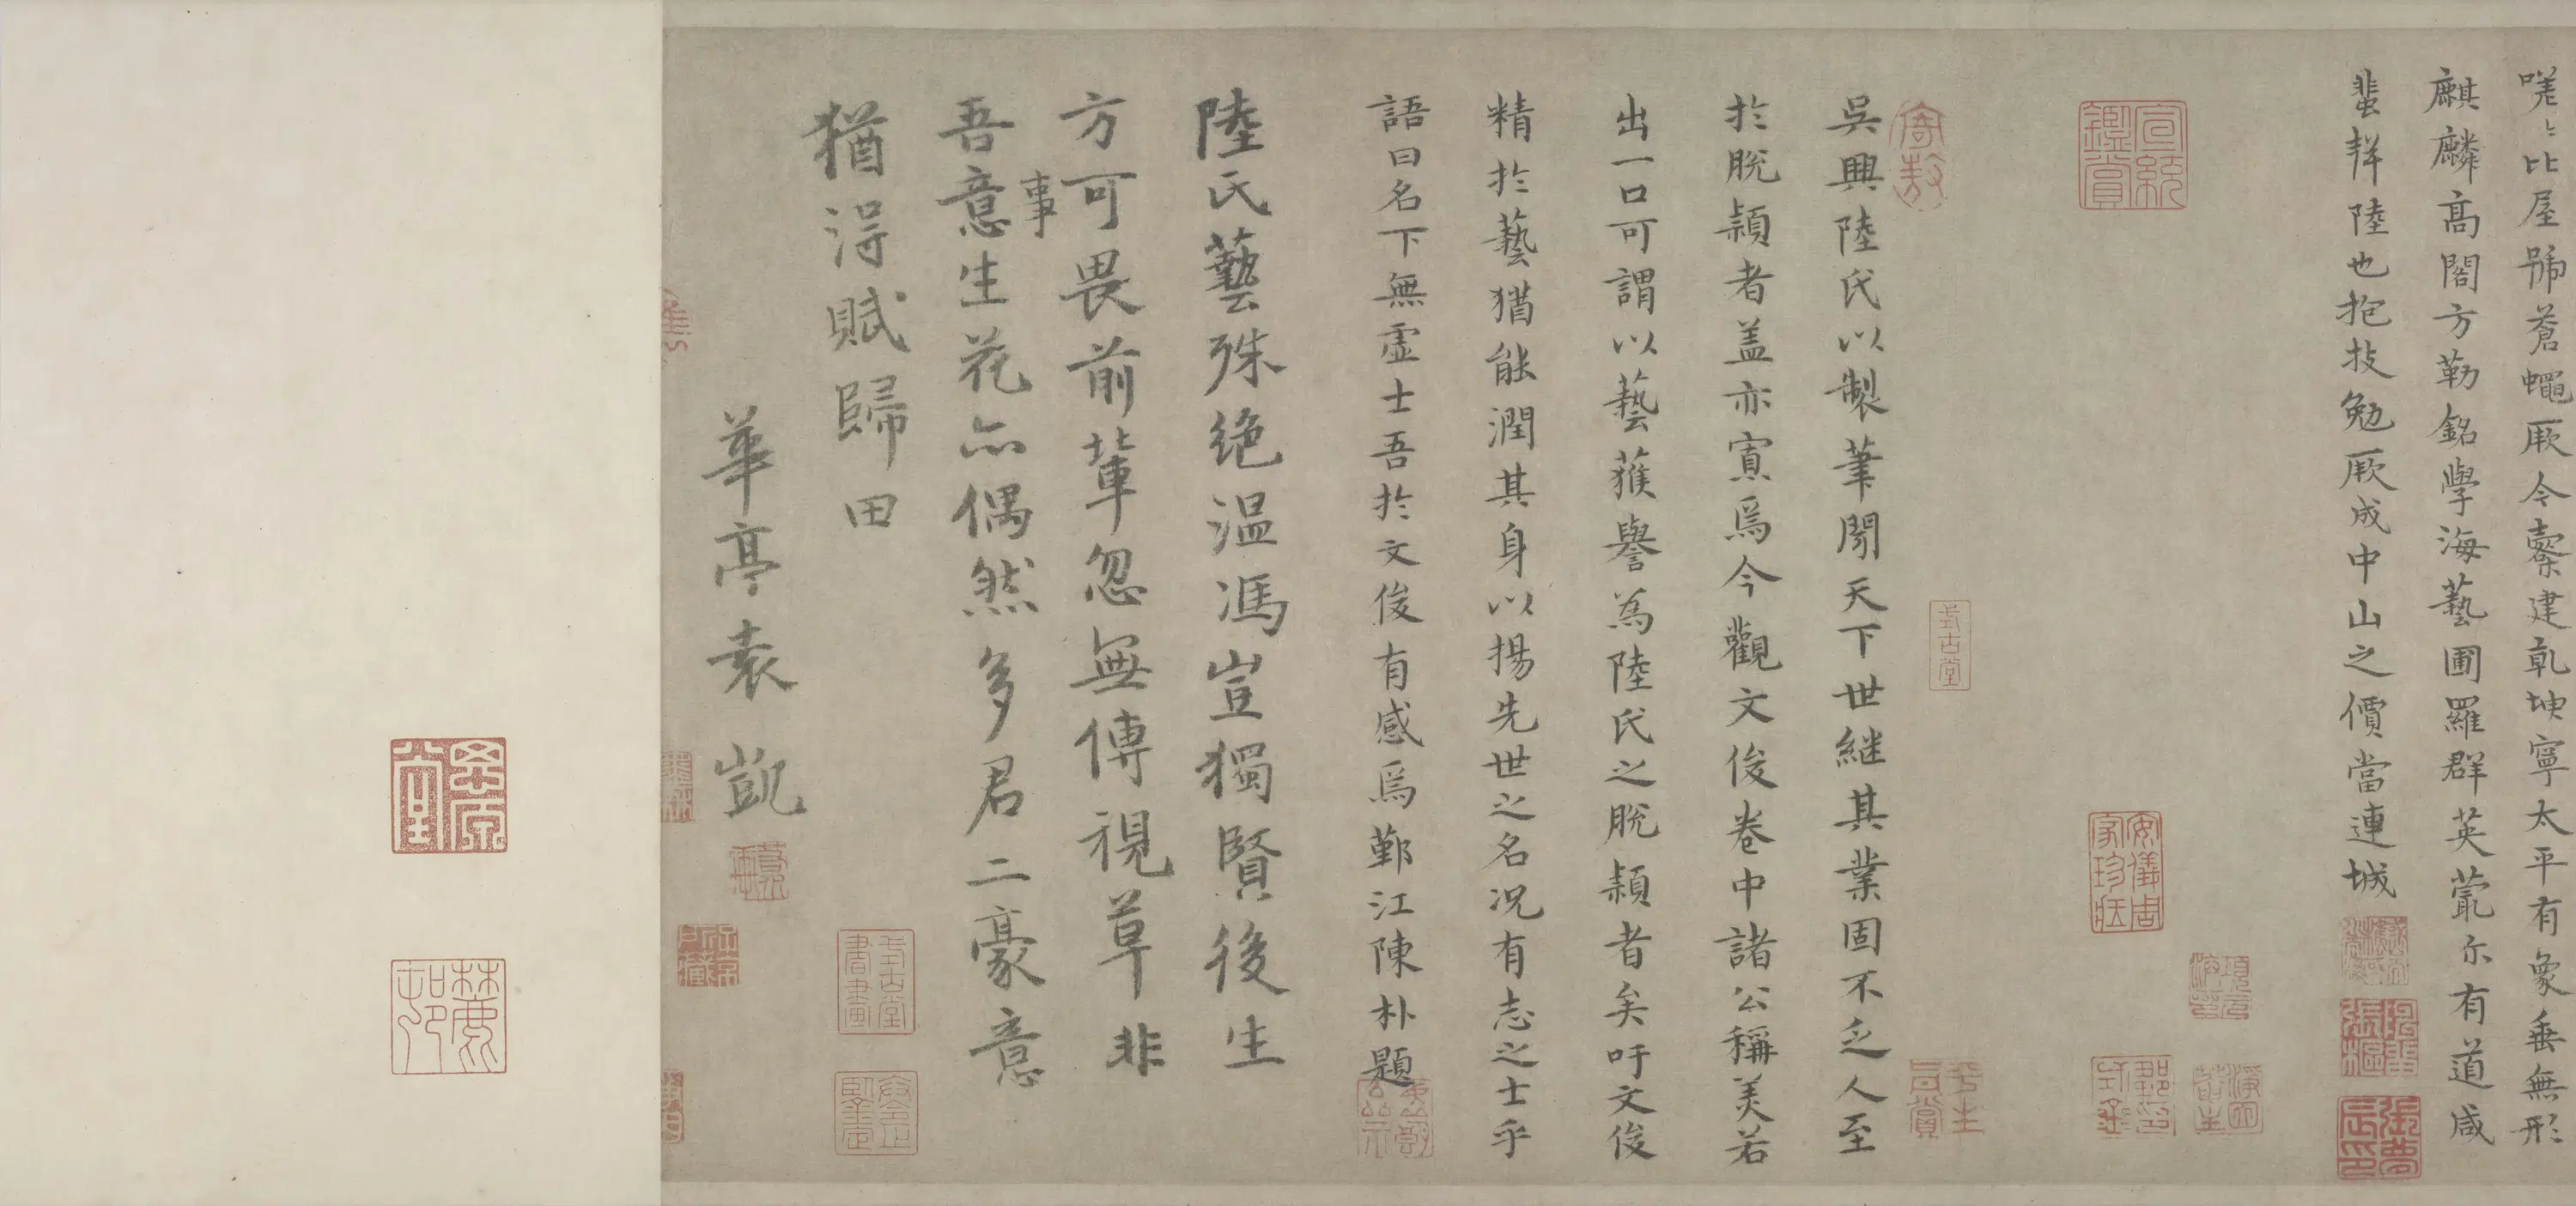 嘆〻比屋號蒼蠅厥令橐建乹坤寧太平有象垂無形
麒麟高閣方勒銘學海藝圃羅群英蔉尓有道咸
蜚辤陸也抱技勉厥成中山之價當連城
吳興陸氏以製筆聞天下世継其業固不乏人至
於脫穎者盖亦寡焉今觀文俊卷中諸公稱美若
出一口可謂以藝獲譽為陸氏之脫穎者矣吁文俊
精於藝猶能潤其身以揚先世之名况有志之士乎
語曰名下無虛士吾於文俊有感焉鄞江陳朴題
陸氏藝殊绝温馮豈獨賢後生
方可畏前輩忽無傳視草非
事
吾意生花亦偶然多君二豪意
猶得賦歸田
華亭袁凱
宣統鑑賞
式古堂
安儀周家珍藏
式古堂書畫